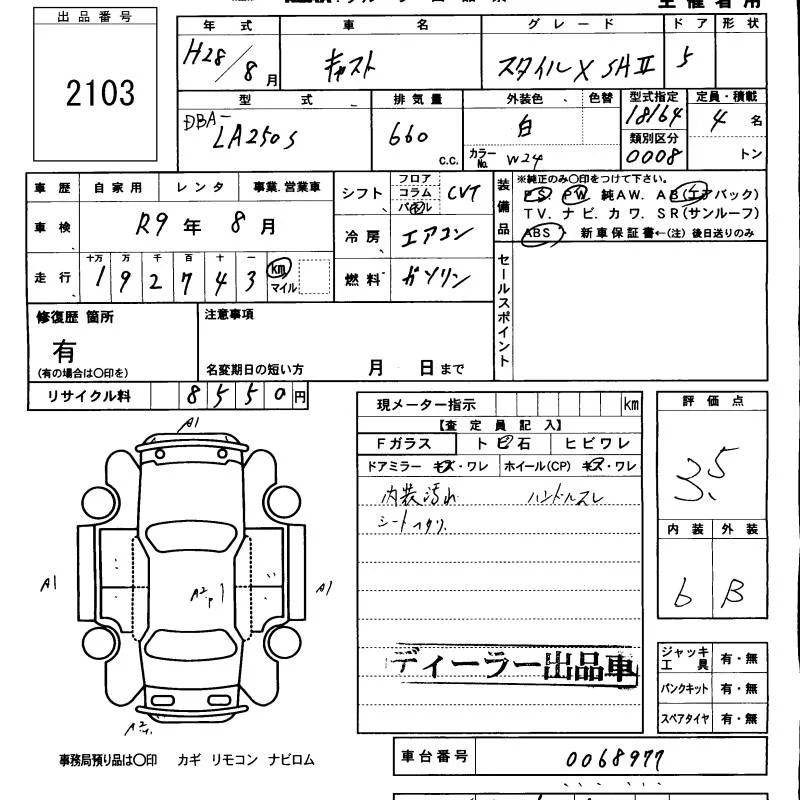 出品番号
2103
年式 車名 グレード ドア 形状
H28/8月 キャスト スタイル X SAⅡ 5
型式 排気量 外装色 色替 型式指定 定員・積載
DBA-LA250S 660 C.C. 白 18164 4名
カラーNo. W24 類別区分 0008 トン
車歴 自家用 レンタ 事業.営業車
車検 R9年 8月
走行 十万 万 千 百 十 一
1 9 2 7 4 3 km マイル
シフト フロア コラム パネル CVT
冷房 エアコン
燃料 ガソリン
装備品 ※純正のみ○印をつけて下さい。
PS. PW. 純AW. AB(エアバック)
TV. ナビ. カワ. SR(サンルーフ)
ABS 新車保証書←(注)後日送りのみ
セールスポイント
修復歴 箇所
有
(有の場合は○印を)
注意事項
名変期日の短い方 月 日まで
リサイクル料 8550円
現メーター指示 km
【査定員記入】
Fガラス トビ石 ヒビワレ
ドアミラー キズ・ワレ ホイール(CP) キズ・ワレ
内装汚れ ハンドルスレ
シート
ディーラー出品車
評価点
3.5
内装 外装
b B
ジャッキ工具 有・無
パンクキット 有・無
スペアタイヤ 有・無
A1
A1
A2
A1
A2
事務局預り品は○印 カギ リモコン ナビロム
車台番号 0068977